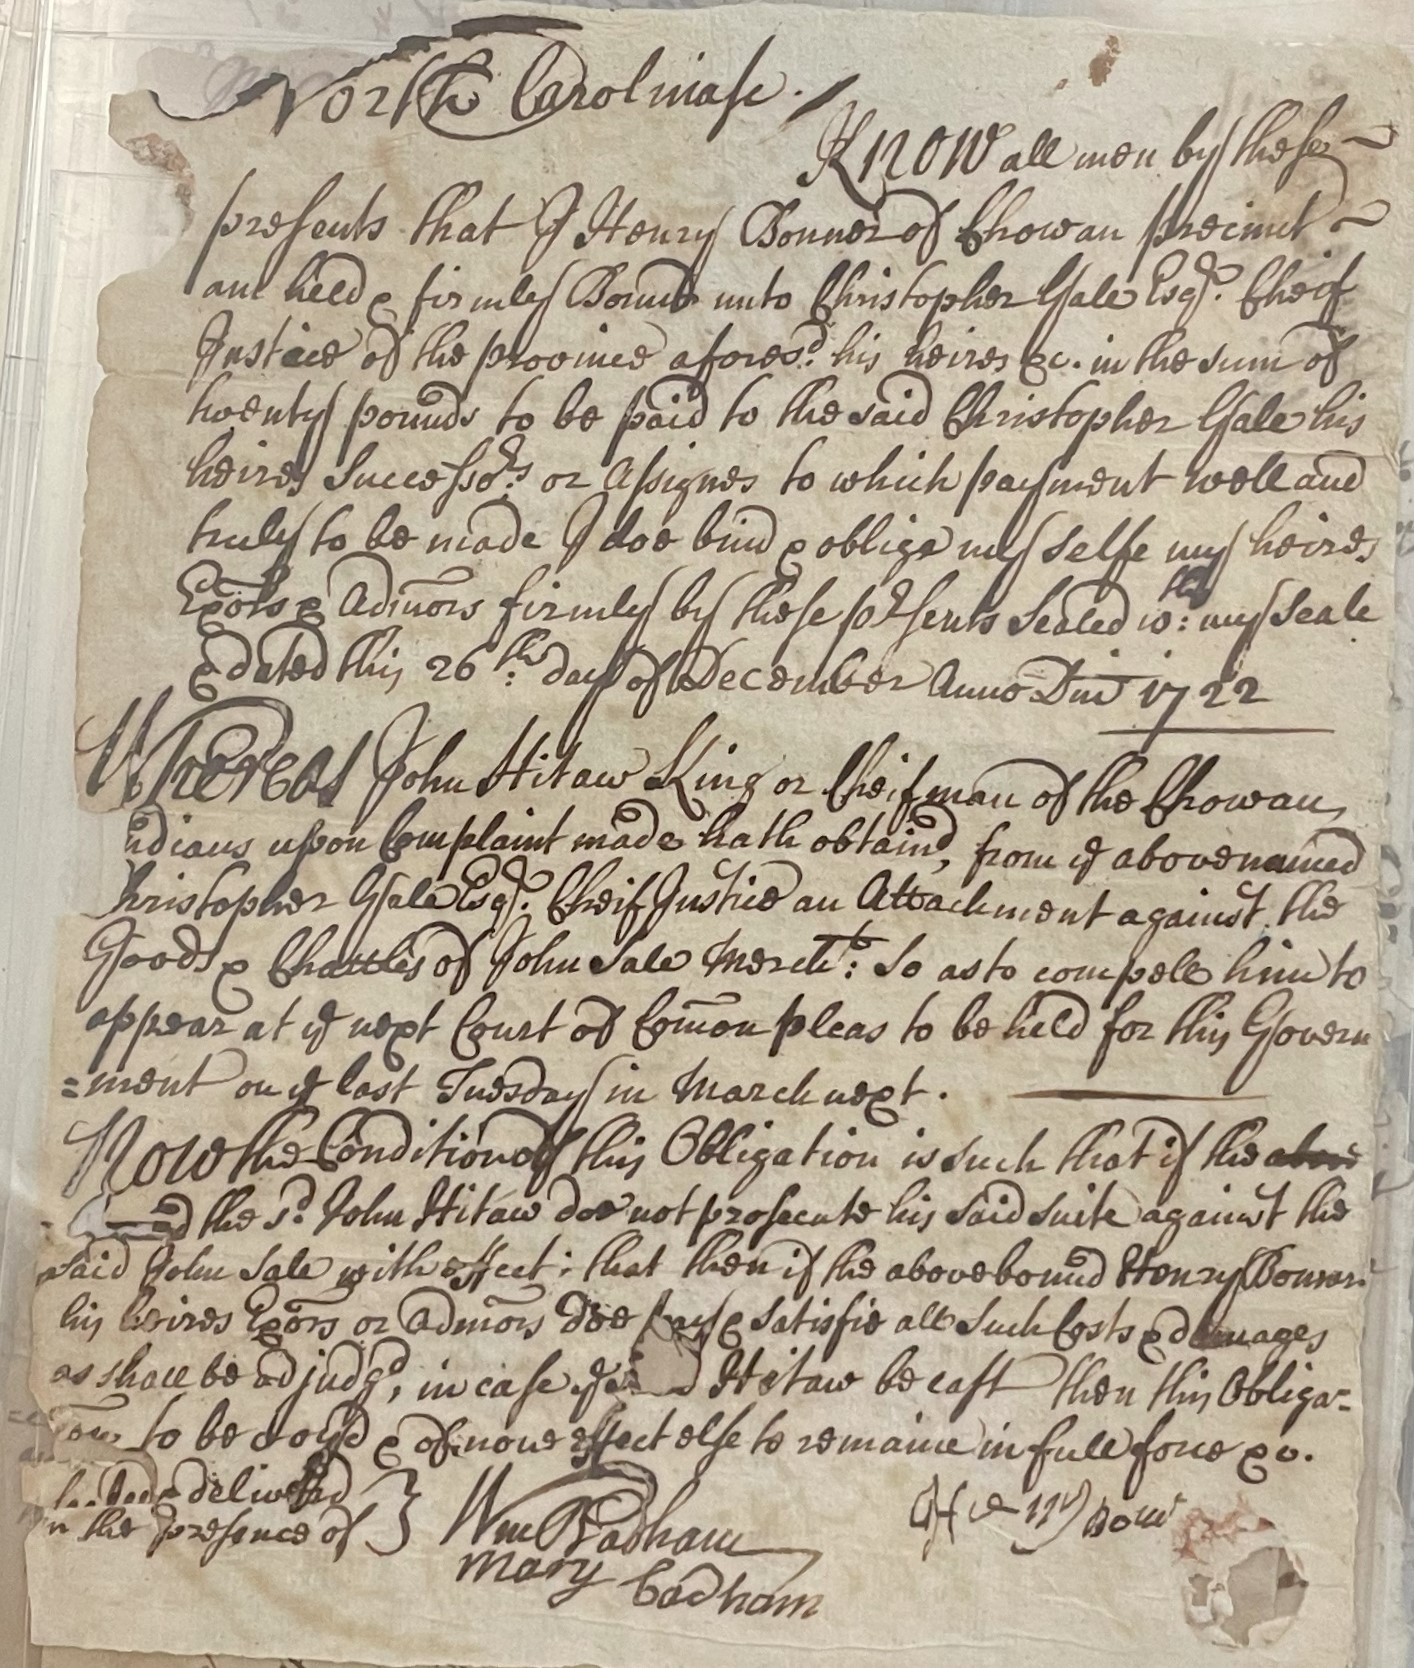 North Carolina sc.
Know all men by these
presents that I Henry Bonner of Chowan precinct
am held & firmly Bound unto Christopher Gale Esqr. Cheif
Justice of the province aforesd. his heires &c. in the sum of
twenty pounds to be paid to the said Christopher Gale his
heires Successors. or Assignes to which payment well and
truly to be made I doe bind & oblige my selfe my heires
Exors & Admors firmly by these prsents Sealed wth: my Seale
& dated this 26th: day of December Anno Dni 1722
Whereas John Hitaw King or Cheif man of the Chowan
ndians upon Complaint made hath obtaind, from ye abovenamed
hristopher Gale Esqr. Cheif Justice an Attachment against the
Goods & Chattles of John Sale Mercht: So as to compell him to
appear at ye next Court of Comon pleas to be held for this Govern
=ment on ye last Tuesday in March next.
Now the Condition of this Obligation is such that if the above
the sd. John Hitaw doe not prosecute his said suite against the
said John Sale with effect: that then if the abovebound Henry Bonner
his heires Exors or Admors doe pay & satisfie all such Costs & damages
as shall be adjudgd, in case ye Hitaw be cast then this Obliga=
to be voyd & of none effect else to remaine in full force &c.
& deliverd
in the presence of } Wm Badham
Mary Badham
Henry Bonner